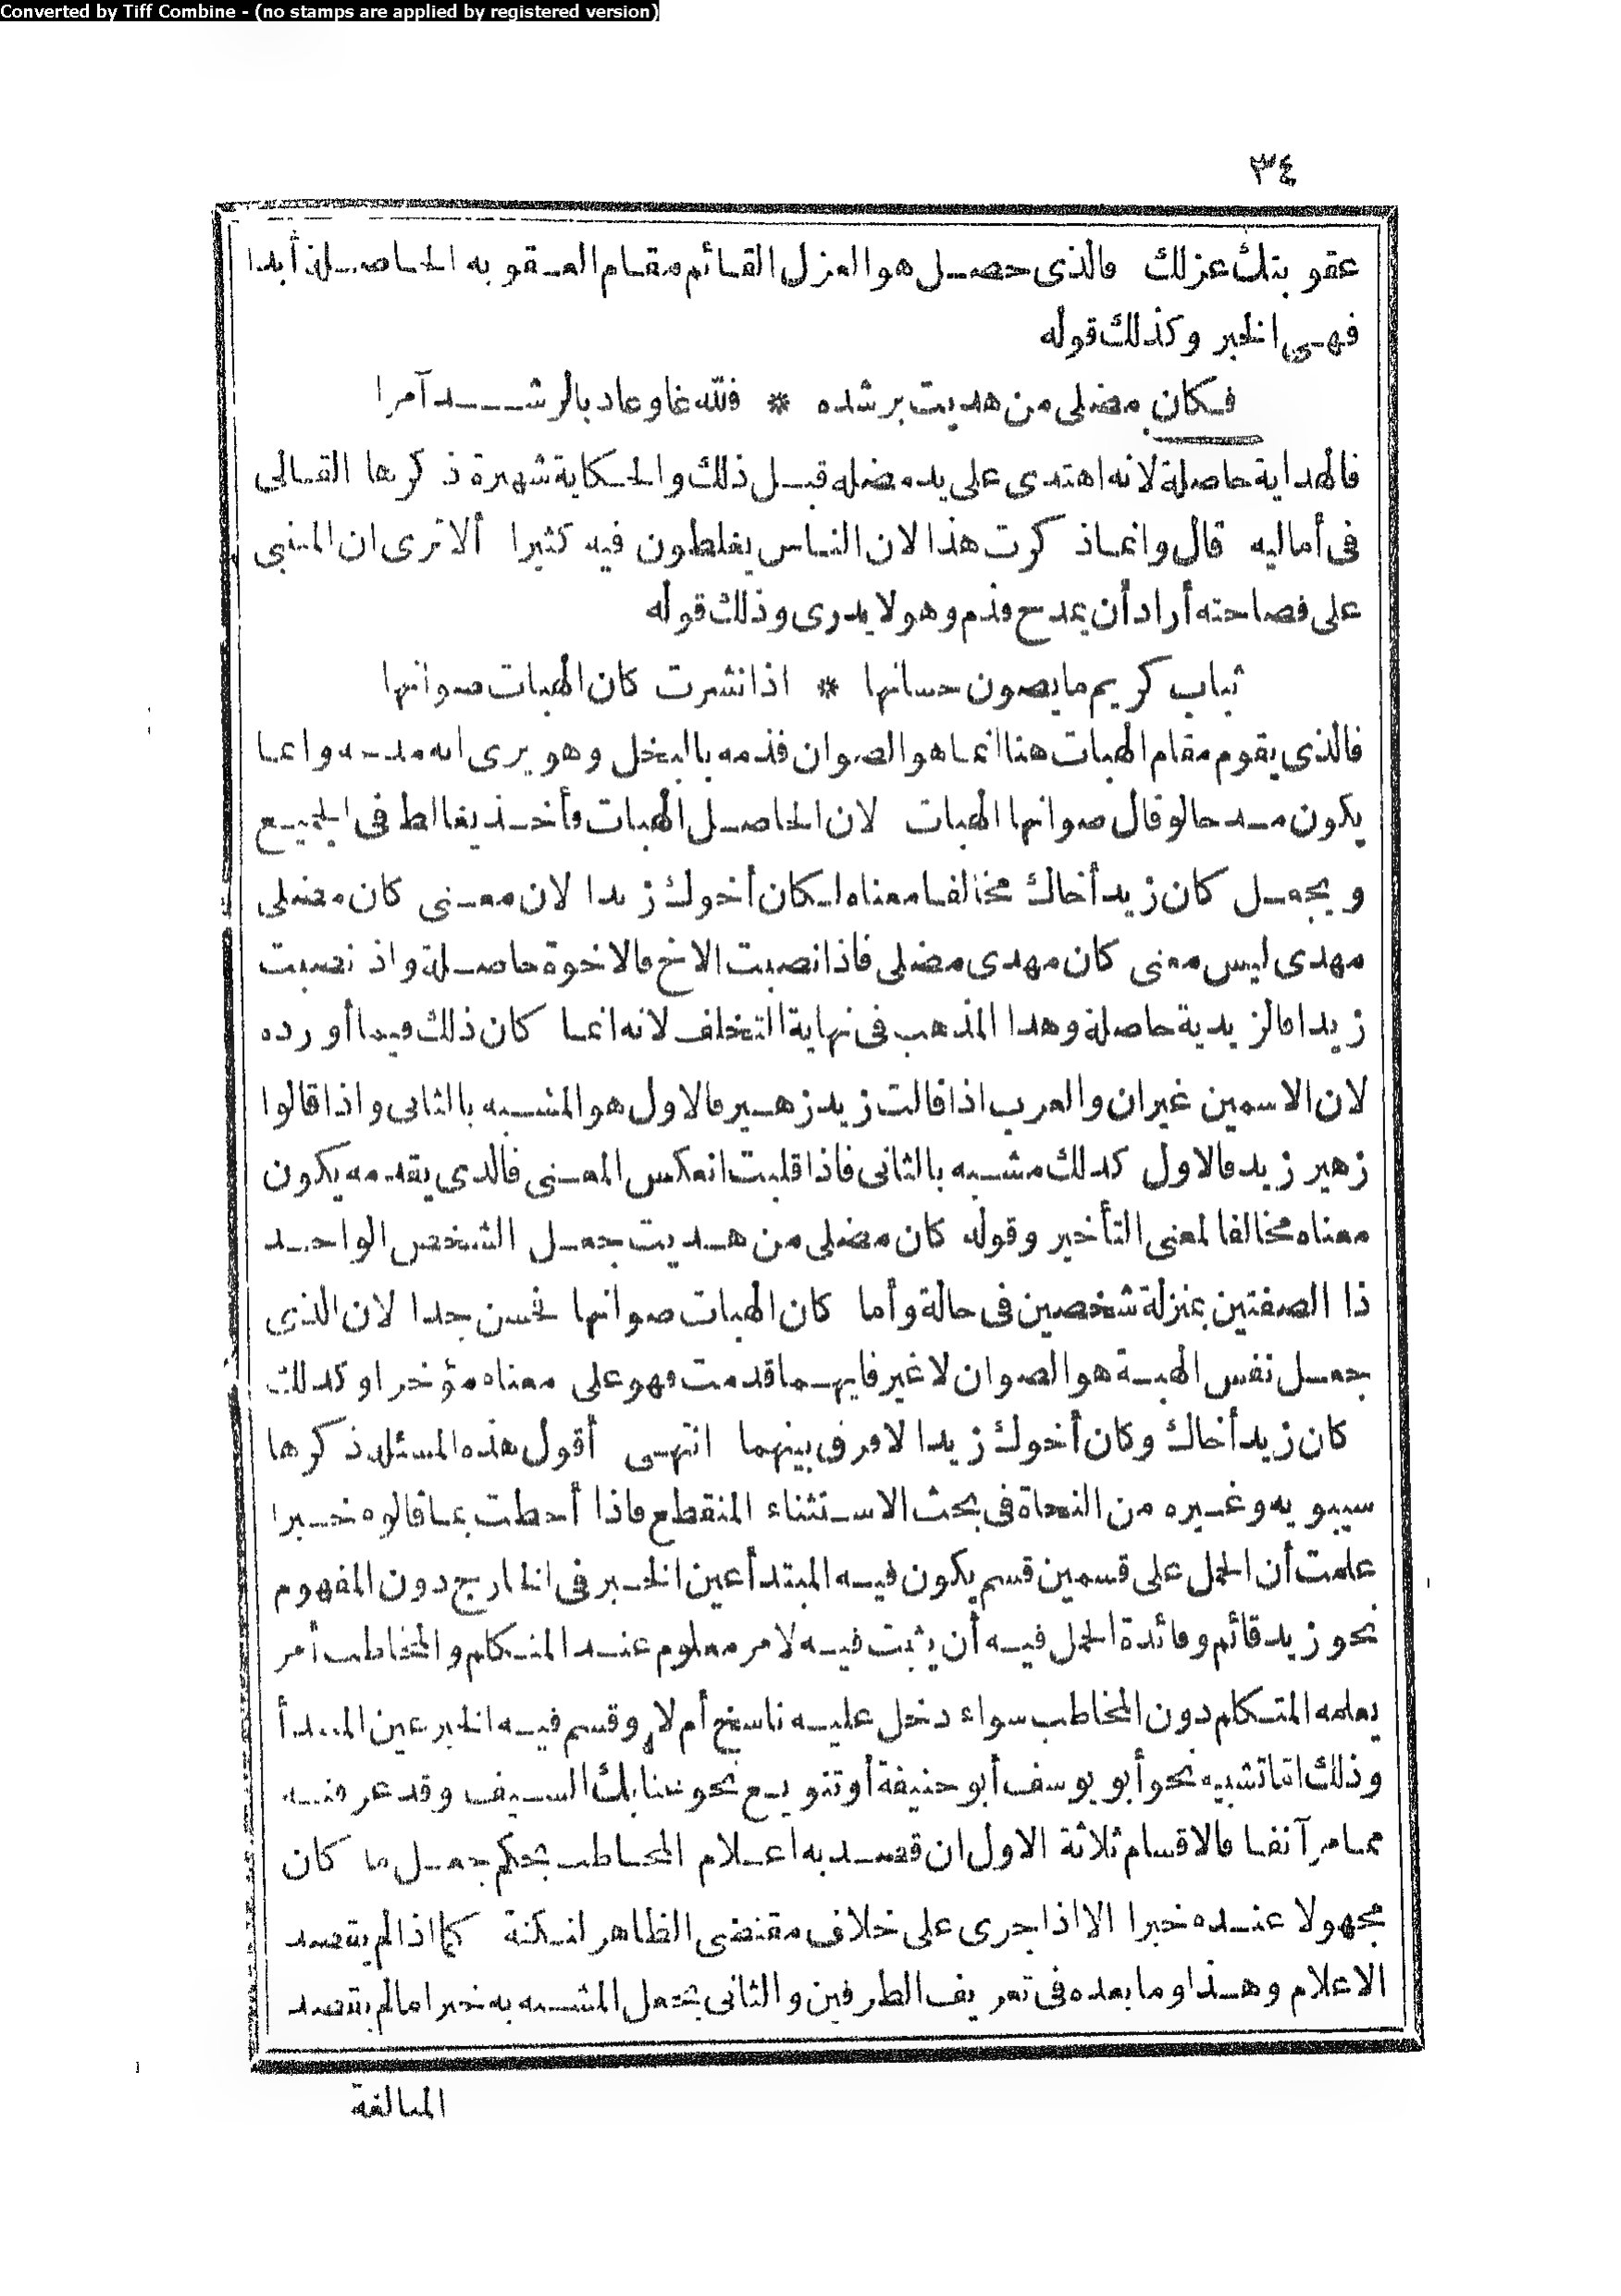 Converted by Tiff Combine - (no stamps are applied by registered version)
٣٤
عقوبتك عزلك فالذى حصل هو العزل القائم مقام العقوبه الحاصلة أبدا
فهى الخبر وكذلك قوله
فكان مضلى من هديت برشده * فلله غاو عاد بالرشد آمرا
فالهداية حاصلة لانه اهتدى على يد مضله قبل ذلك والحكاية شهيرة ذكرها القالى
فى أماليه قال وانما ذكرت هذا لان الناس يغلطون فيه كثيرا ألا ترى ان المتنبى
على فصاحته أراد أن يمدح فذم وهو لا يدرى وذلك قوله
ثياب كريم ما يصون حسانها * اذا نشرت كان الهبات صوانها
فالذى يقوم مقام الهبات هنا انما هو الصوان فذمه بالبخل وهو يرى انه مدحه وانما
يكون مدحا لو قال صوانها الهبات لان الحاصل الهبات وأخذ يغالط فى الجميع
ويجعل كان زيد أخاك مخالفا معناه لكان أخوك زيدا لان معنى كان مضلى
مهدى ليس معنى كان مهدى مضلى فاذا نصبت الاخ فالاخوة حاصلة واذ نصبت
زيدا فالزيدية حاصلة وهذا المذهب فى نهاية التخلف لانه انما كان ذلك فيما أورده
لان الاسمين غيران والعرب اذا قالت زيد زهير فالاول هو المشبه بالثانى واذا قالوا
زهير زيد فالاول كذلك مشبه بالثانى فاذا قلبت انعكس المعنى فالذى يقدمه يكون
معناه مخالفا لمعنى التأخير وقوله كان مضلى من هديت جعل الشخص الواحد
ذا الصفتين بمنزلة شخصين فى حالة وأما كان الهبات صوانها فحسن جدا لان الذى
جعل نفس الهبة هو الصوان لا غير فايهما قدمت فهو على معناه مؤخرا وكذلك
كان زيد أخاك وكان أخوك زيدا لا فرق بينهما انتهى أقول هذه المسئلة ذكرها
سيبويه وغيره من النحاة فى بحث الاستثناء المنقطع فاذا أحطت بما قالوه خبرا
علمت أن الحمل على قسمين قسم يكون فيه المبتدأ عين الخبر فى الخارج دون المفهوم
نحو زيد قائم وفائدة الحمل فيه أن يثبت فيه لامر معلوم عند المتكلم والمخاطب أمر
يعلمه المتكلم دون المخاطب سواء دخل عليه ناسخ أم لا وقسم فيه الخبر عين المبتدأ
وذلك اما تشبيه نحو أبو يوسف أبو حنيفة أو تنويع نحو عتابك السيف وقد عرفته
مما مر آنفا فالاقسام ثلاثة الاول ان قصد به اعلام المخاطب بحكم جعل ما كان
مجهولا عنده خبرا الا اذا جرى على خلاف مقتضى الظاهر لنكتة كما اذا لم يقصد
الاعلام وهذا وما بعده فى تعريف الطرفين والثانى يجعل المشبه به خبرا ما لم يقصد
المبالغة